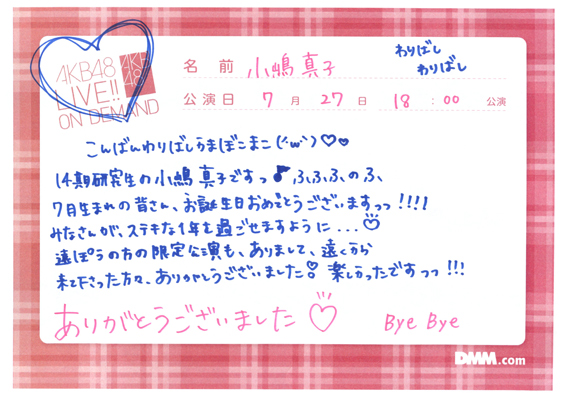 AKB48
LIVE!!
ON DEMAND
AKB
48
名前 小嶋真子
わりばし
わりばし
公演日 7月27日 18:00 公演
こんばんわりばしうまぼこまこ(˘ω˘)♡♡
14期研究生の小嶋真子ですっ♪ふふふのふ、
7月生まれの皆さん、お誕生日おめでとうございますっっ!!!!
みなさんが、ステキな1年を過ごせますように...♡
遠ぽうの方の限定公演も、ありまして、遠くから
来て下さった方々、ありがとうございました! 楽しかったですっっ!!!
ありがとうございました♡ Bye Bye
DMM.com